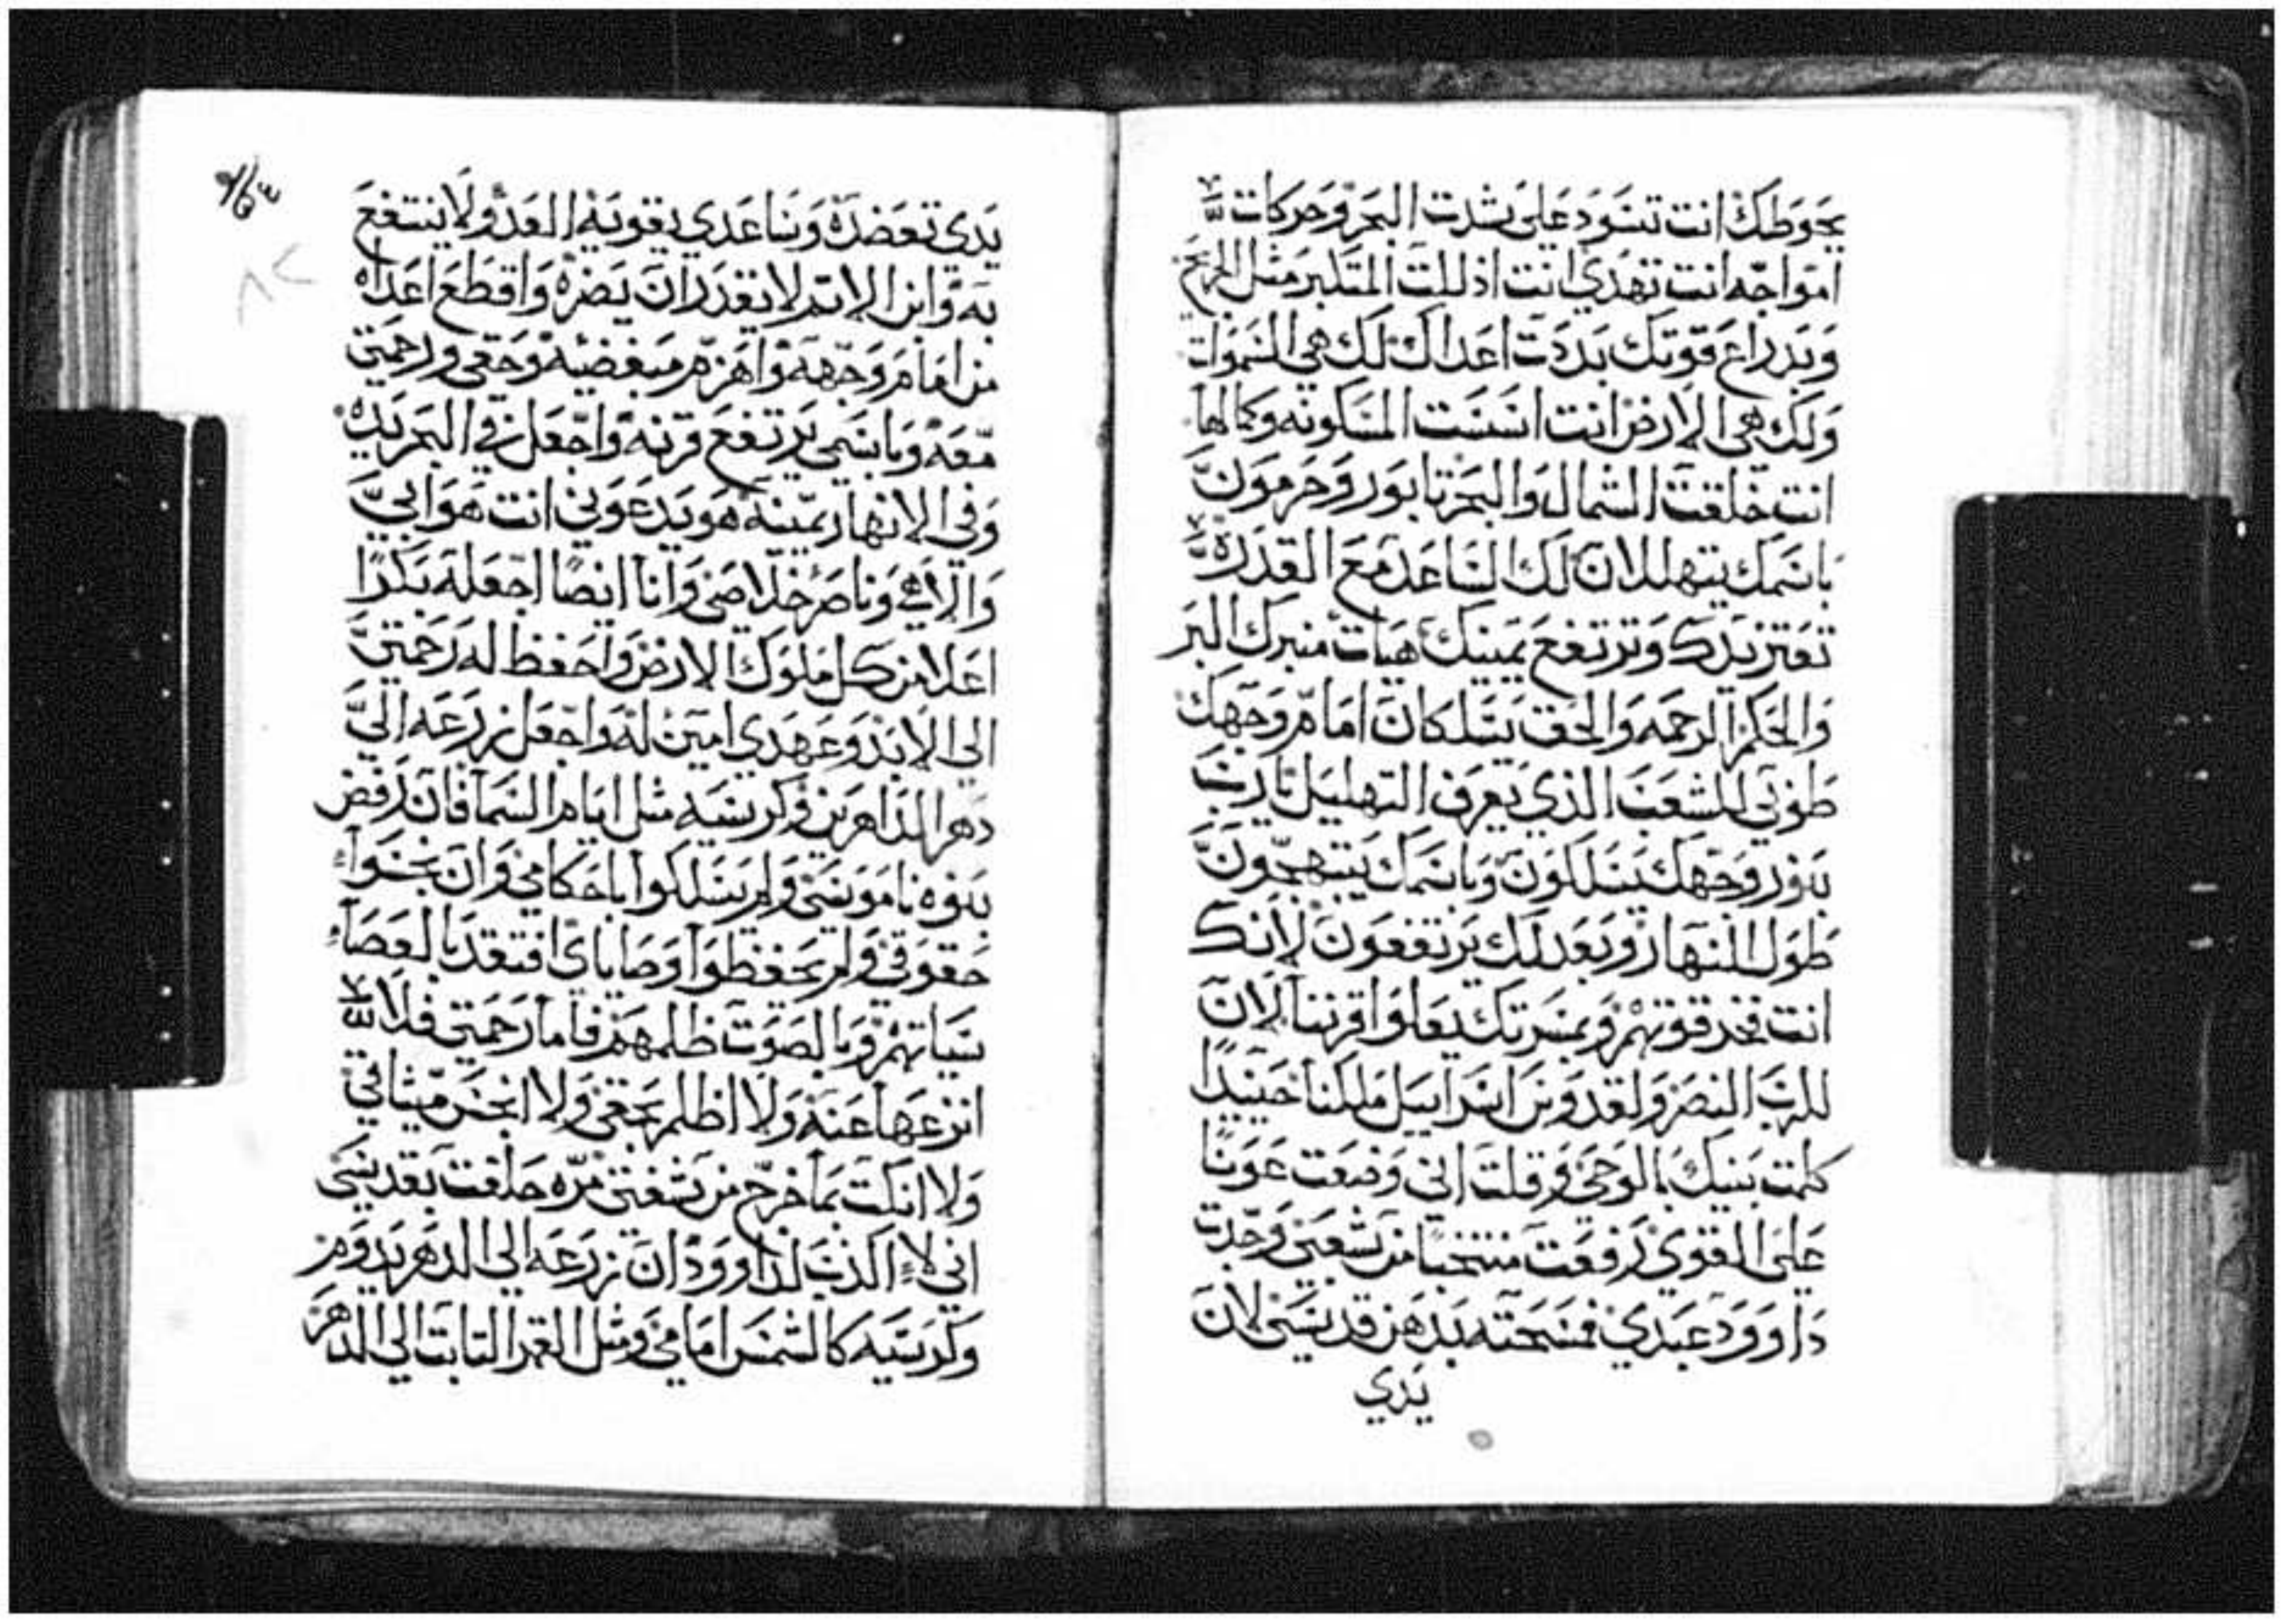 يحوطك انت تسود على شدت البحر وحركات
امواجه انت تهدي انت اذللت المتكبر مثل الجريح
وبدراع قوتك بددت اعداك لك هي السموات
ولك هي الارض انت اسست المسكونه وكمالها
انت خلقت الشمال والبحر تابور وحرمون
باسمك يتهللان لك الساعد مع القدره
تعتز يدك وترتفع يمينك هيات منبرك البر
والحكم الرحمه والحق يسلكان امام وجهك
طوبى للشعب الذي يعرف التهليل يارب
بنور وجهك يسلكون وباسمك يبتهجون
طول النهار وبعدلك يرتفعون لانك
انت فخر قوتهم وبمسرتك يعلوا قرننا لان
للرب النصر ولقدوس اسراييل ملكنا حينيدا
كلمت بنيك بالوحي وقلت اني وضعت عونا
على القوي رفعت منتخبا من شعبي وجدت
داوود عبدي فمسحته بدهن قدسي لان
يدي
يدي تعضده وساعدي يقويه العدو لا ينتفع
به وابن الاتم لا يقدر ان يضره واقطع اعداه
من امام وجهه واهزم مبغضيه وحقي ورحمتي
معه وباسمي يرتفع قرنه واجعل في البحر يده
وفي الانهار يمينه هو يدعوني انت هو ابي
والاهي وناصر خلاصي وانا ايضا اجعله بكرا
اعلا من كل ملوك الارض واحفظ له رحمتي
الى الابد وعهدي امين له واجعل زرعه الى
دهر الداهرين وكرسيه مثل ايام السما فان رفض
بنوه ناموسي ولم يسلكوا باحكامي وان نجسوا
حقوقي ولم يحفظوا وصاياي افتقد بالعصا
سياتهم وبالصوت ظلمهم فاما رحمتي فلا
انزعها عنه ولا اظلم بحقي ولا انجس ميثاقي
ولا انكت بما خرج من شفتي مره حلفت بقدسي
اني لا اكذب لداوود ان زرعه الى الدهر يدوم
وكرسيه كالشمس امامي ومثل القمر التابت الى الدهر